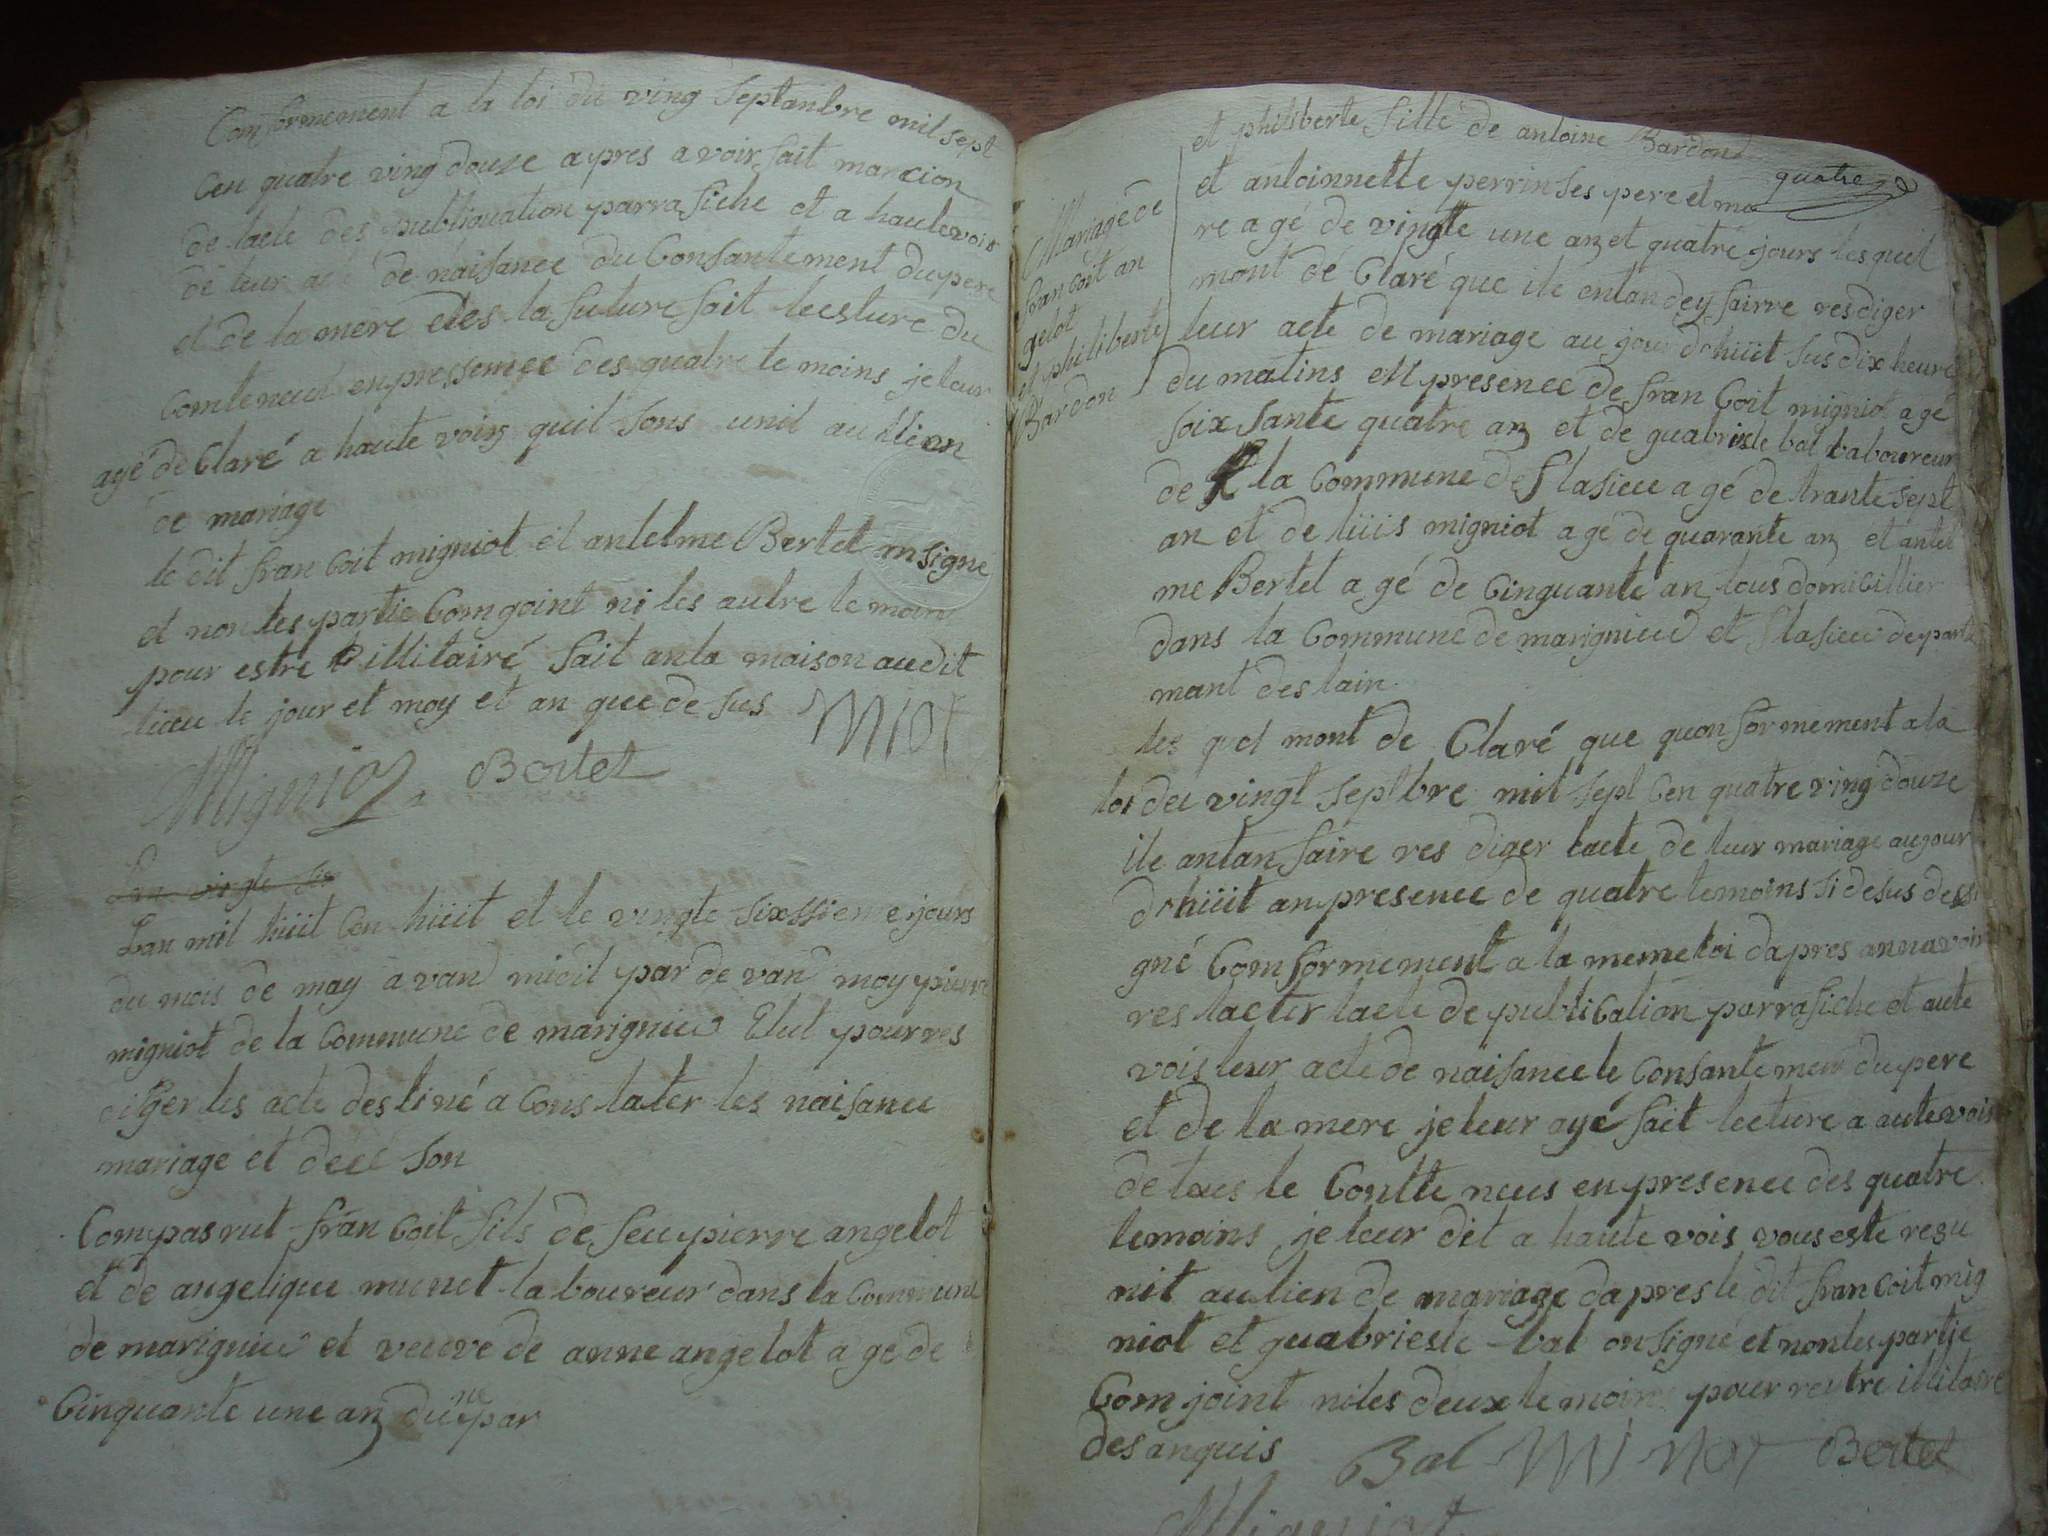 Comformement a la loi du ving septanbre mil sept
Cen quatre ving douze apres avoir fait mancion
de lacte des publiquation parrafiche et a haute vois
de leur acte de naisance du Consantement du pere
et de la mere de la future fait lecsture du
Conteneud en pressence des quatre temoins je leur
ayé de Claré a haute voix quil sons unil au lien
de mariage
le dit fran Coit migniot et antelme Bertet on signe
et non les partie Comjoint ni les autre temoin
pour estre illitairé fait an la maison au dit
lieu le jour et moy et an que de sus
Mignios Bertet
Lan vingte six
Lan mil huit Cen huit et le vingte sixssieme jours
du mois de may avand midil par de vand moy pierre
migniot de la Commune de marignieu Elut pour res
diger les acte destiné a Conslater les naisance
mariage et décé son
Compasrut fran Coit fils de feu pierre angelot
et de angelique munet laboureur dans la Commune
de marignieu et veuve de anne angelot a gé de
Cinquante une an d'une par
quatre
et philiberte fille de antoine Bardon
et antoinnette perrin ses pere et me
re a gé de vingte une an et quatre jours les quel
mont dé Claré que ile entandey fairre resdiger
leur acte de mariage au jour d'huit sus dix heure
du matins en presence de fran Coit migniot a gé
soix sante quatre an et de guabriele bal laboureur
de la Commune de flasieu a gé de trante sept
an et de luiis migniot a gé de quarante an et antel
me Bertet a gé de Cinquante an tous domicillier
dans la Commune de marignieu et flasieu departe
mant des lain
les quel mont de Claré que quonformement a la
loi du vingt septbre mil sept Cen quatre ving douze
ile antan faire res diger lacte de leur mariage aujour
d'huiit an presence de quatre temoins si desus dessi
gné Comformement a la meme loi dapres annavoir
res lacter lacte de publication parrafiche et aute
vois leur acte de naisance le Consantemen du pere
et de la mere je leur ayé fait lecture a aute vois
de tous le Contte neus en presence des quatre
temoins je leur dit a haute vois vous este resu
nit au lien de mariage dapres le dit fran Coit mig
niot et guabriesle bal on signé et non les partie
Com joint ni les deux temoins pour restre illitaire
des anquis Bal Bertet
Migniot
Mariage de
fran Coit an
gelot
et philiberte
Bardon